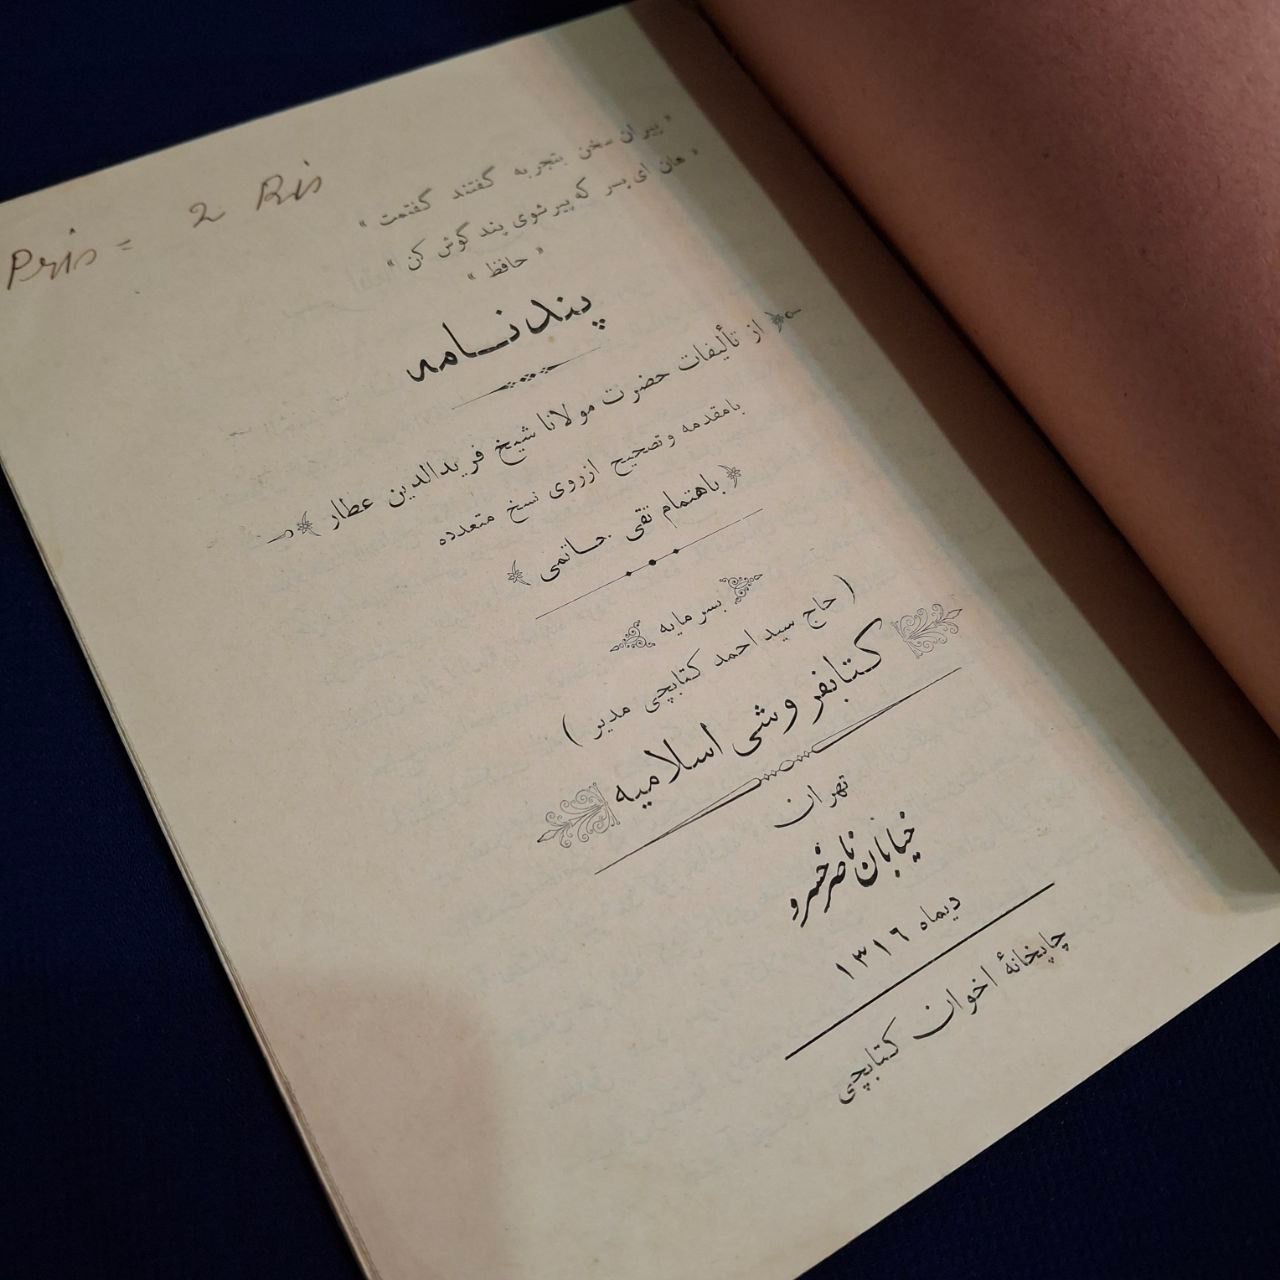 Pris = 2 Rls
« پیران سخن بتجربه گفتند گفتمت »
« هان ای پسر که پیر شوی پند گوش کن »
« حافظ »
پندنامه
از تألیفات حضرت مولانا شیخ فریدالدین عطار
بامقدمه وتصحیح ازروی نسخ متعدده
باهتمام تقی حاتمی
بسرمایه
( حاج سید احمد کتابچی مدیر )
کتابفروشی اسلامیه
تهران
خیابان ناصرخسرو
دیماه ۱۳۱٦
چاپخانهٔ اخوان کتابچی